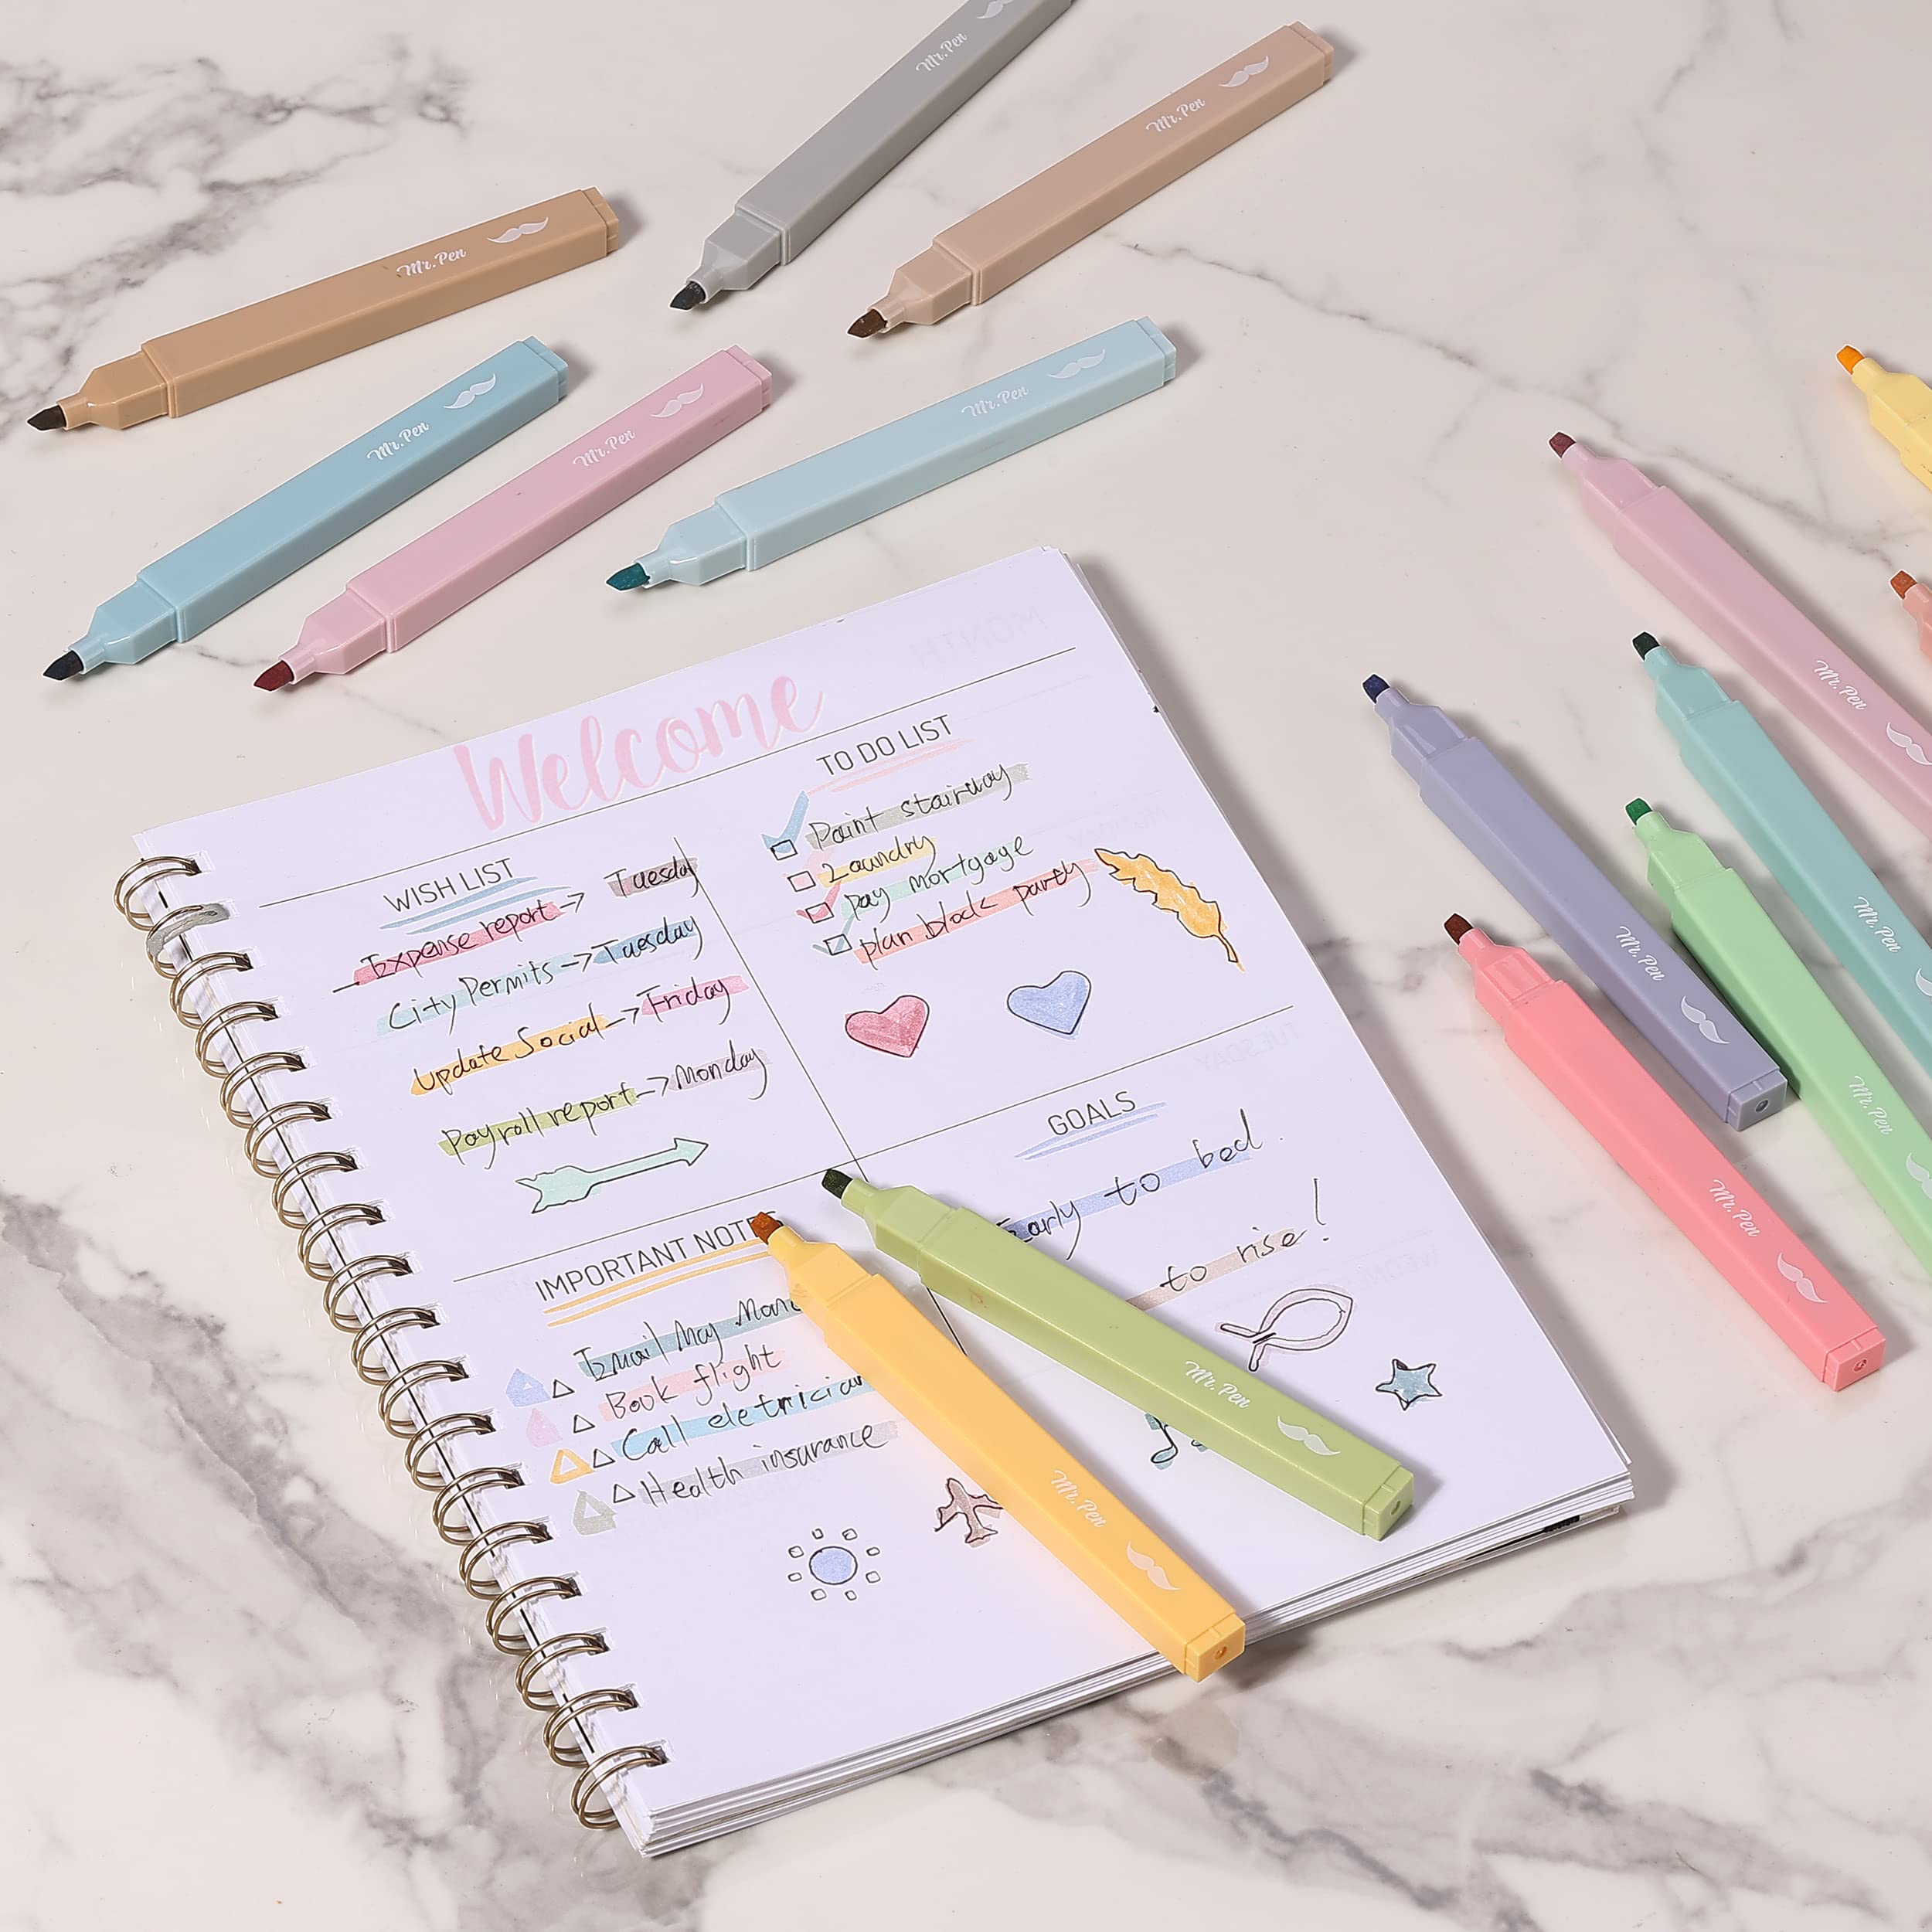 Mr. Pen
Mr. Pen
Mr. Pen
Mr. Pen
Mr. Pen
Mr. Pen
Welcome
WISH LIST
Expense report -> Tuesday
City Permits -> Tuesday
Update Social -> Friday
Payroll report -> Monday
TO DO LIST
Paint stairway
Laundry
pay mortgage
plan block party
IMPORTANT NOTES
Email May
Book flight
Call eletrician
Health insurance
GOALS
Early to bed.
to rise!
Mr. Pen
Mr. Pen
Mr. Pen
Mr. Pen
Mr. Pen
Mr. Pen
Mr. Pen
MONTH
TUESDAY